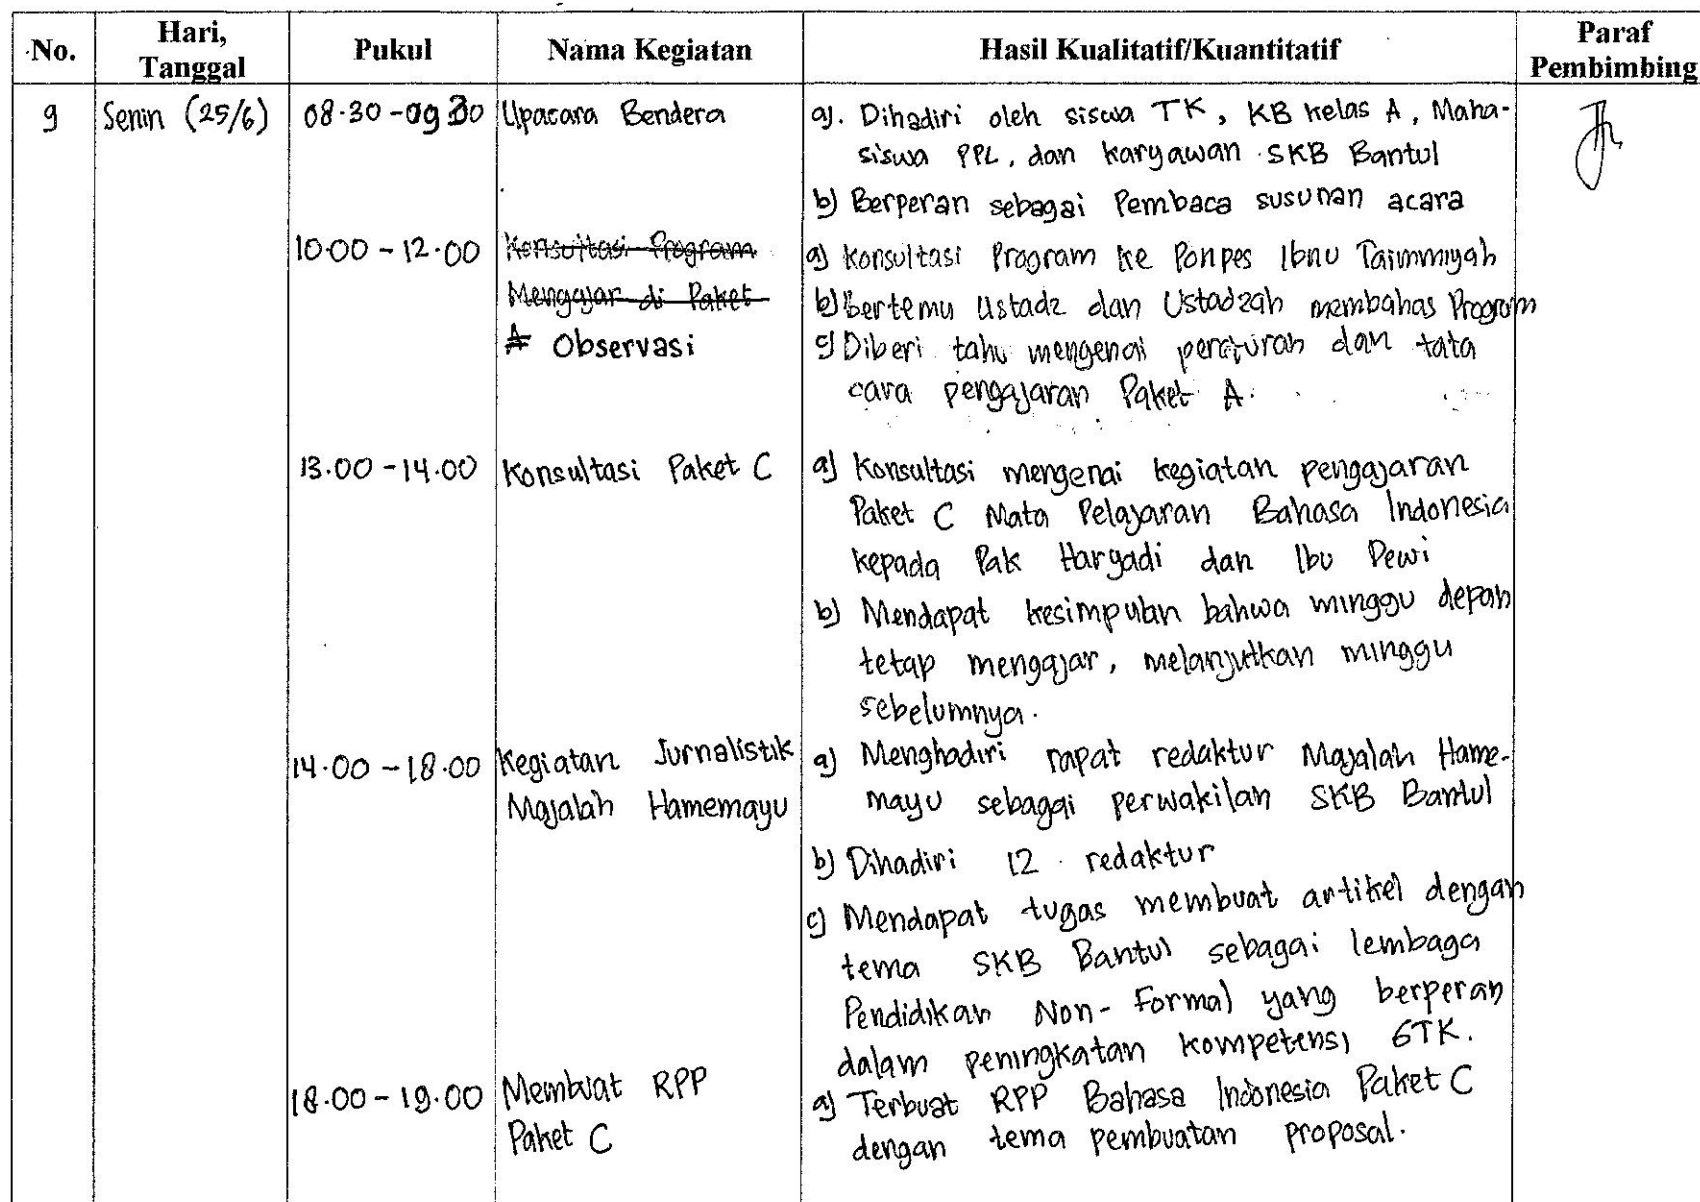 No. Hari, Tanggal Pukul Nama Kegiatan Hasil Kualitatif/Kuantitatif Paraf Pembimbing
9 Senin (25/6) 08.30 - 09 30 Upacara Bendera a). Dihadiri oleh siswa TK, KB kelas A, Maha-
siswa PPL, dan karyawan SKB Bantul
b) Berperan sebagai Pembaca susunan acara
10.00 - 12.00 Konsultasi Program a) Konsultasi Program ke Ponpes Ibnu Taimmiyah
Mengajar di Paket b) Bertemu Ustadz dan Ustadzah membahas Program
A Observasi c) Diberi tahu mengenai peraturan dan tata
cara pengajaran Paket A.
13.00 - 14.00 Konsultasi Paket C a) Konsultasi mengenai kegiatan pengajaran
Paket C Mata Pelajaran Bahasa Indonesia
kepada Pak Hargadi dan Ibu Dewi
b) Mendapat kesimpulan bahwa minggu depan
tetap mengajar, melanjutkan minggu
sebelumnya.
14.00 - 18.00 Kegiatan Jurnalistik a) Menghadiri rapat redaktur Majalah Hame-
Majalah Hamemayu mayu sebagai perwakilan SKB Bantul
b) Dihadiri 12 redaktur
c) Mendapat tugas membuat artikel dengan
tema SKB Bantul sebagai lembaga
Pendidikan Non-Formal yang berperan
dalam peningkatan kompetensi GTK.
18.00 - 19.00 Membuat RPP a) Terbuat RPP Bahasa Indonesia Paket C
Paket C dengan tema pembuatan proposal.